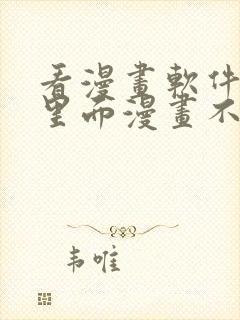 看漫畫軟件
里面漫畫不
韦唯